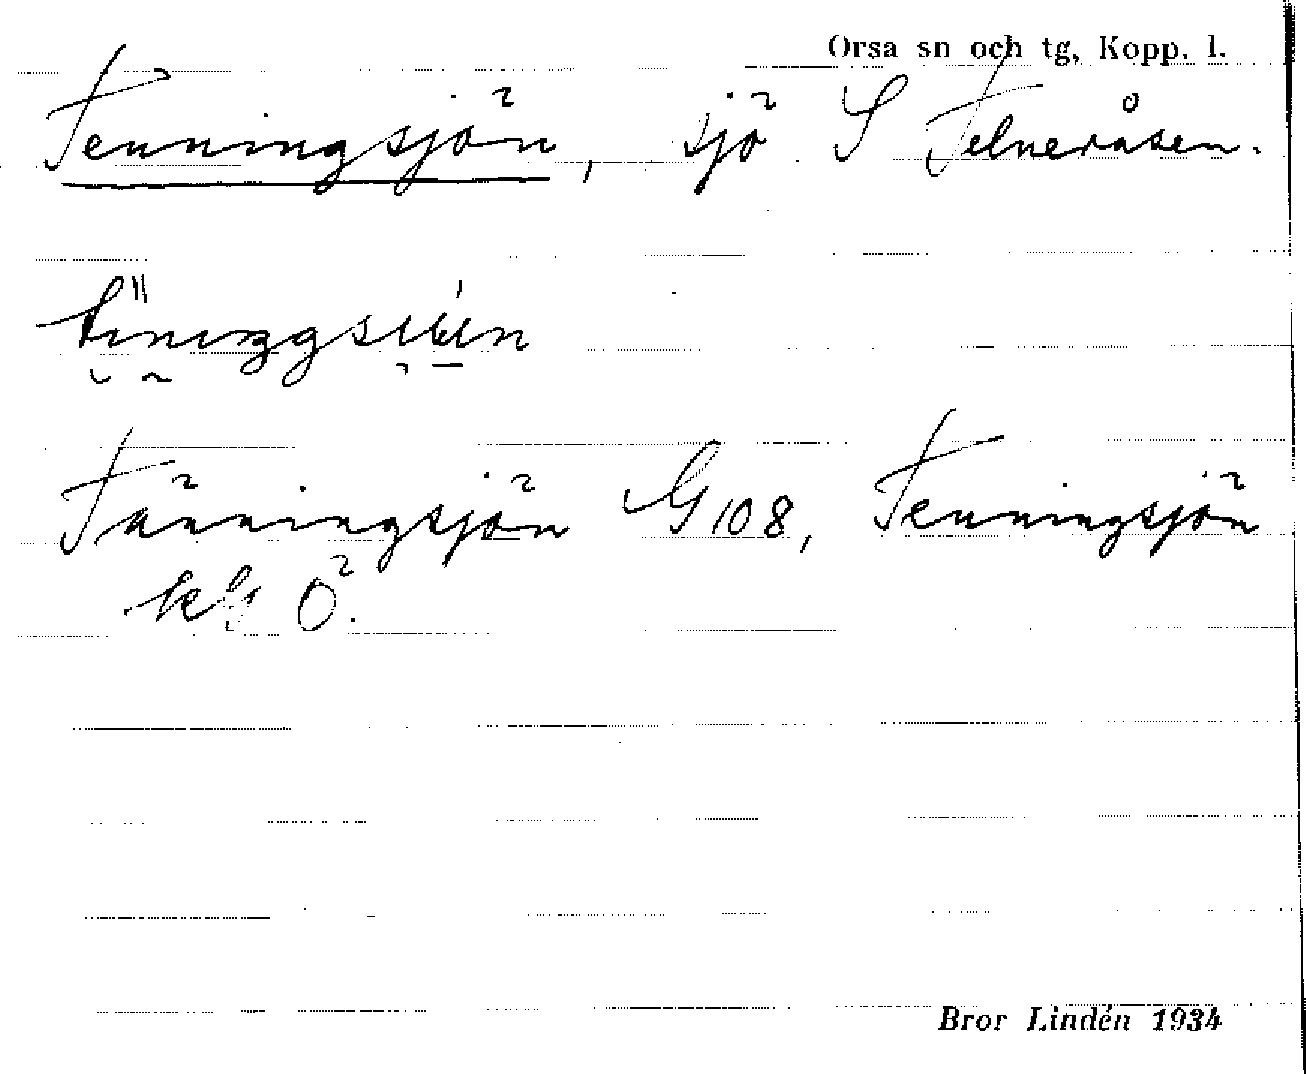 Orsa sn och tg, Kopp. l.
Tenningsjön, sjö S Telneråsen.
Tänningsjön G 108, Tenningsjön
Bror Lindén 1934